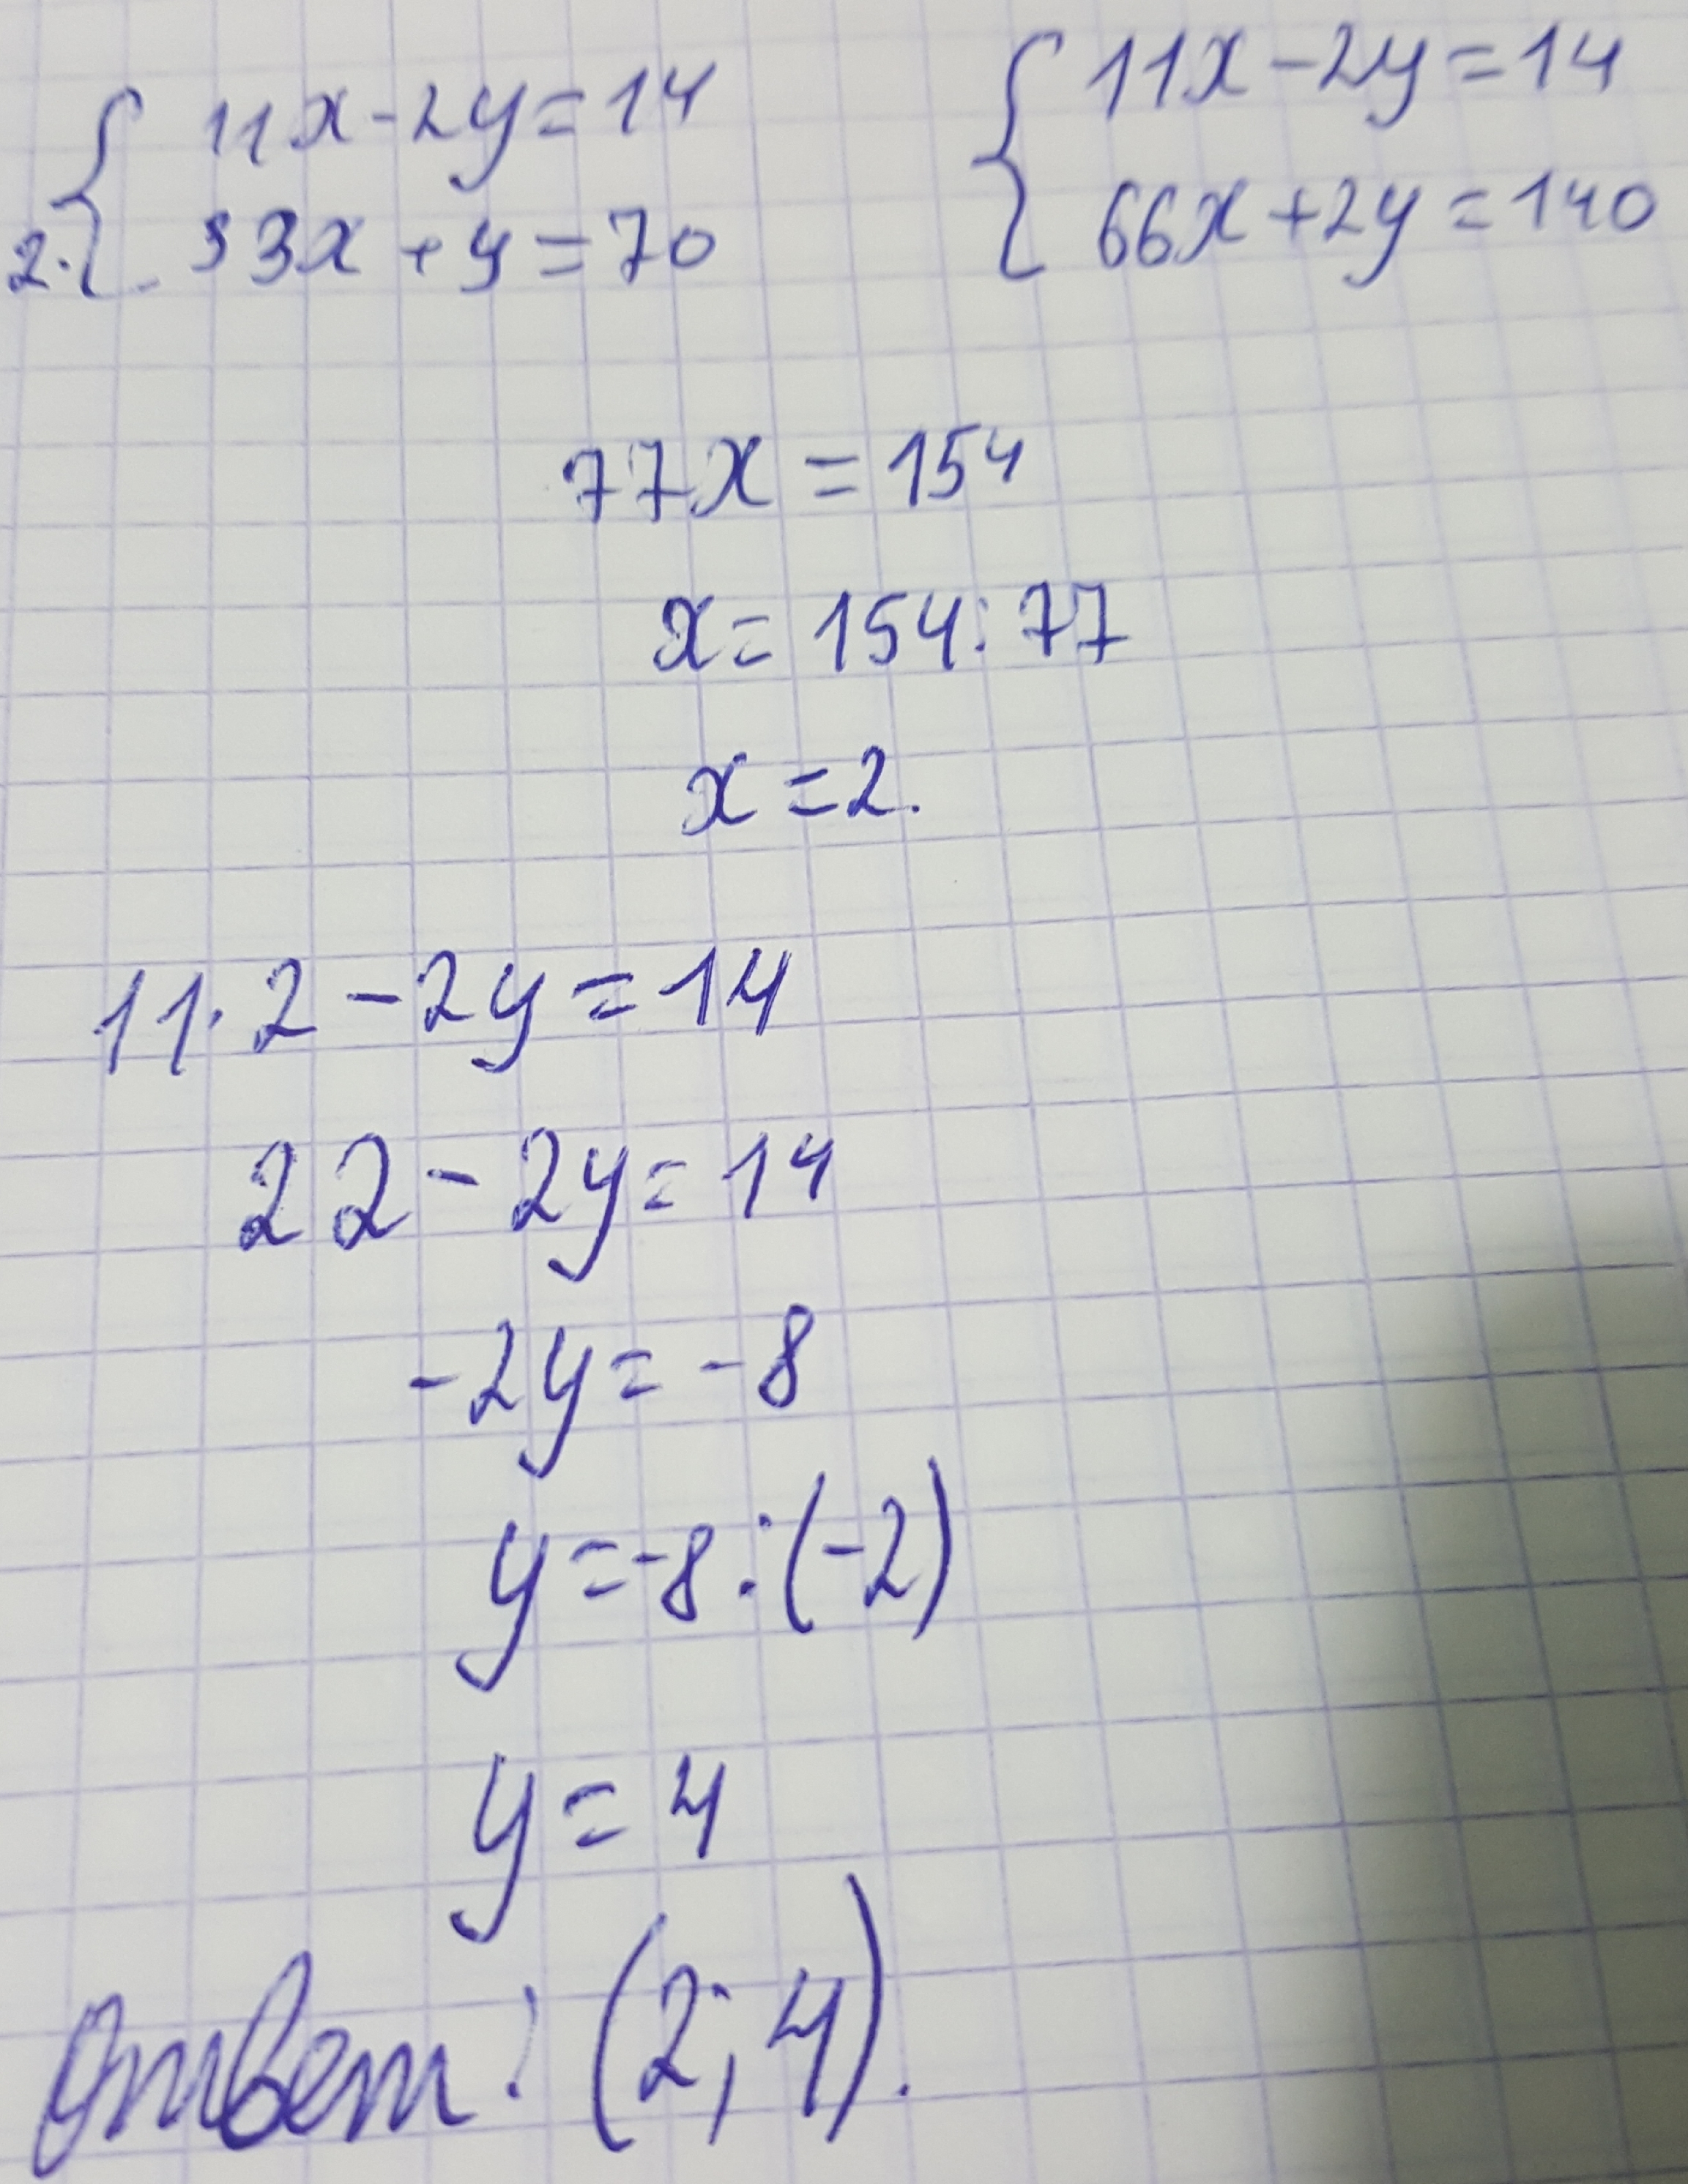 11x-2y=14
2. 33x+y=70
11x-2y=14
66x+2y=140
77x=154
x=154:77
x=2.
11·2-2y=14
22-2y=14
-2y=-8
y=-8:(-2)
y=4
Ответ: (2;4).